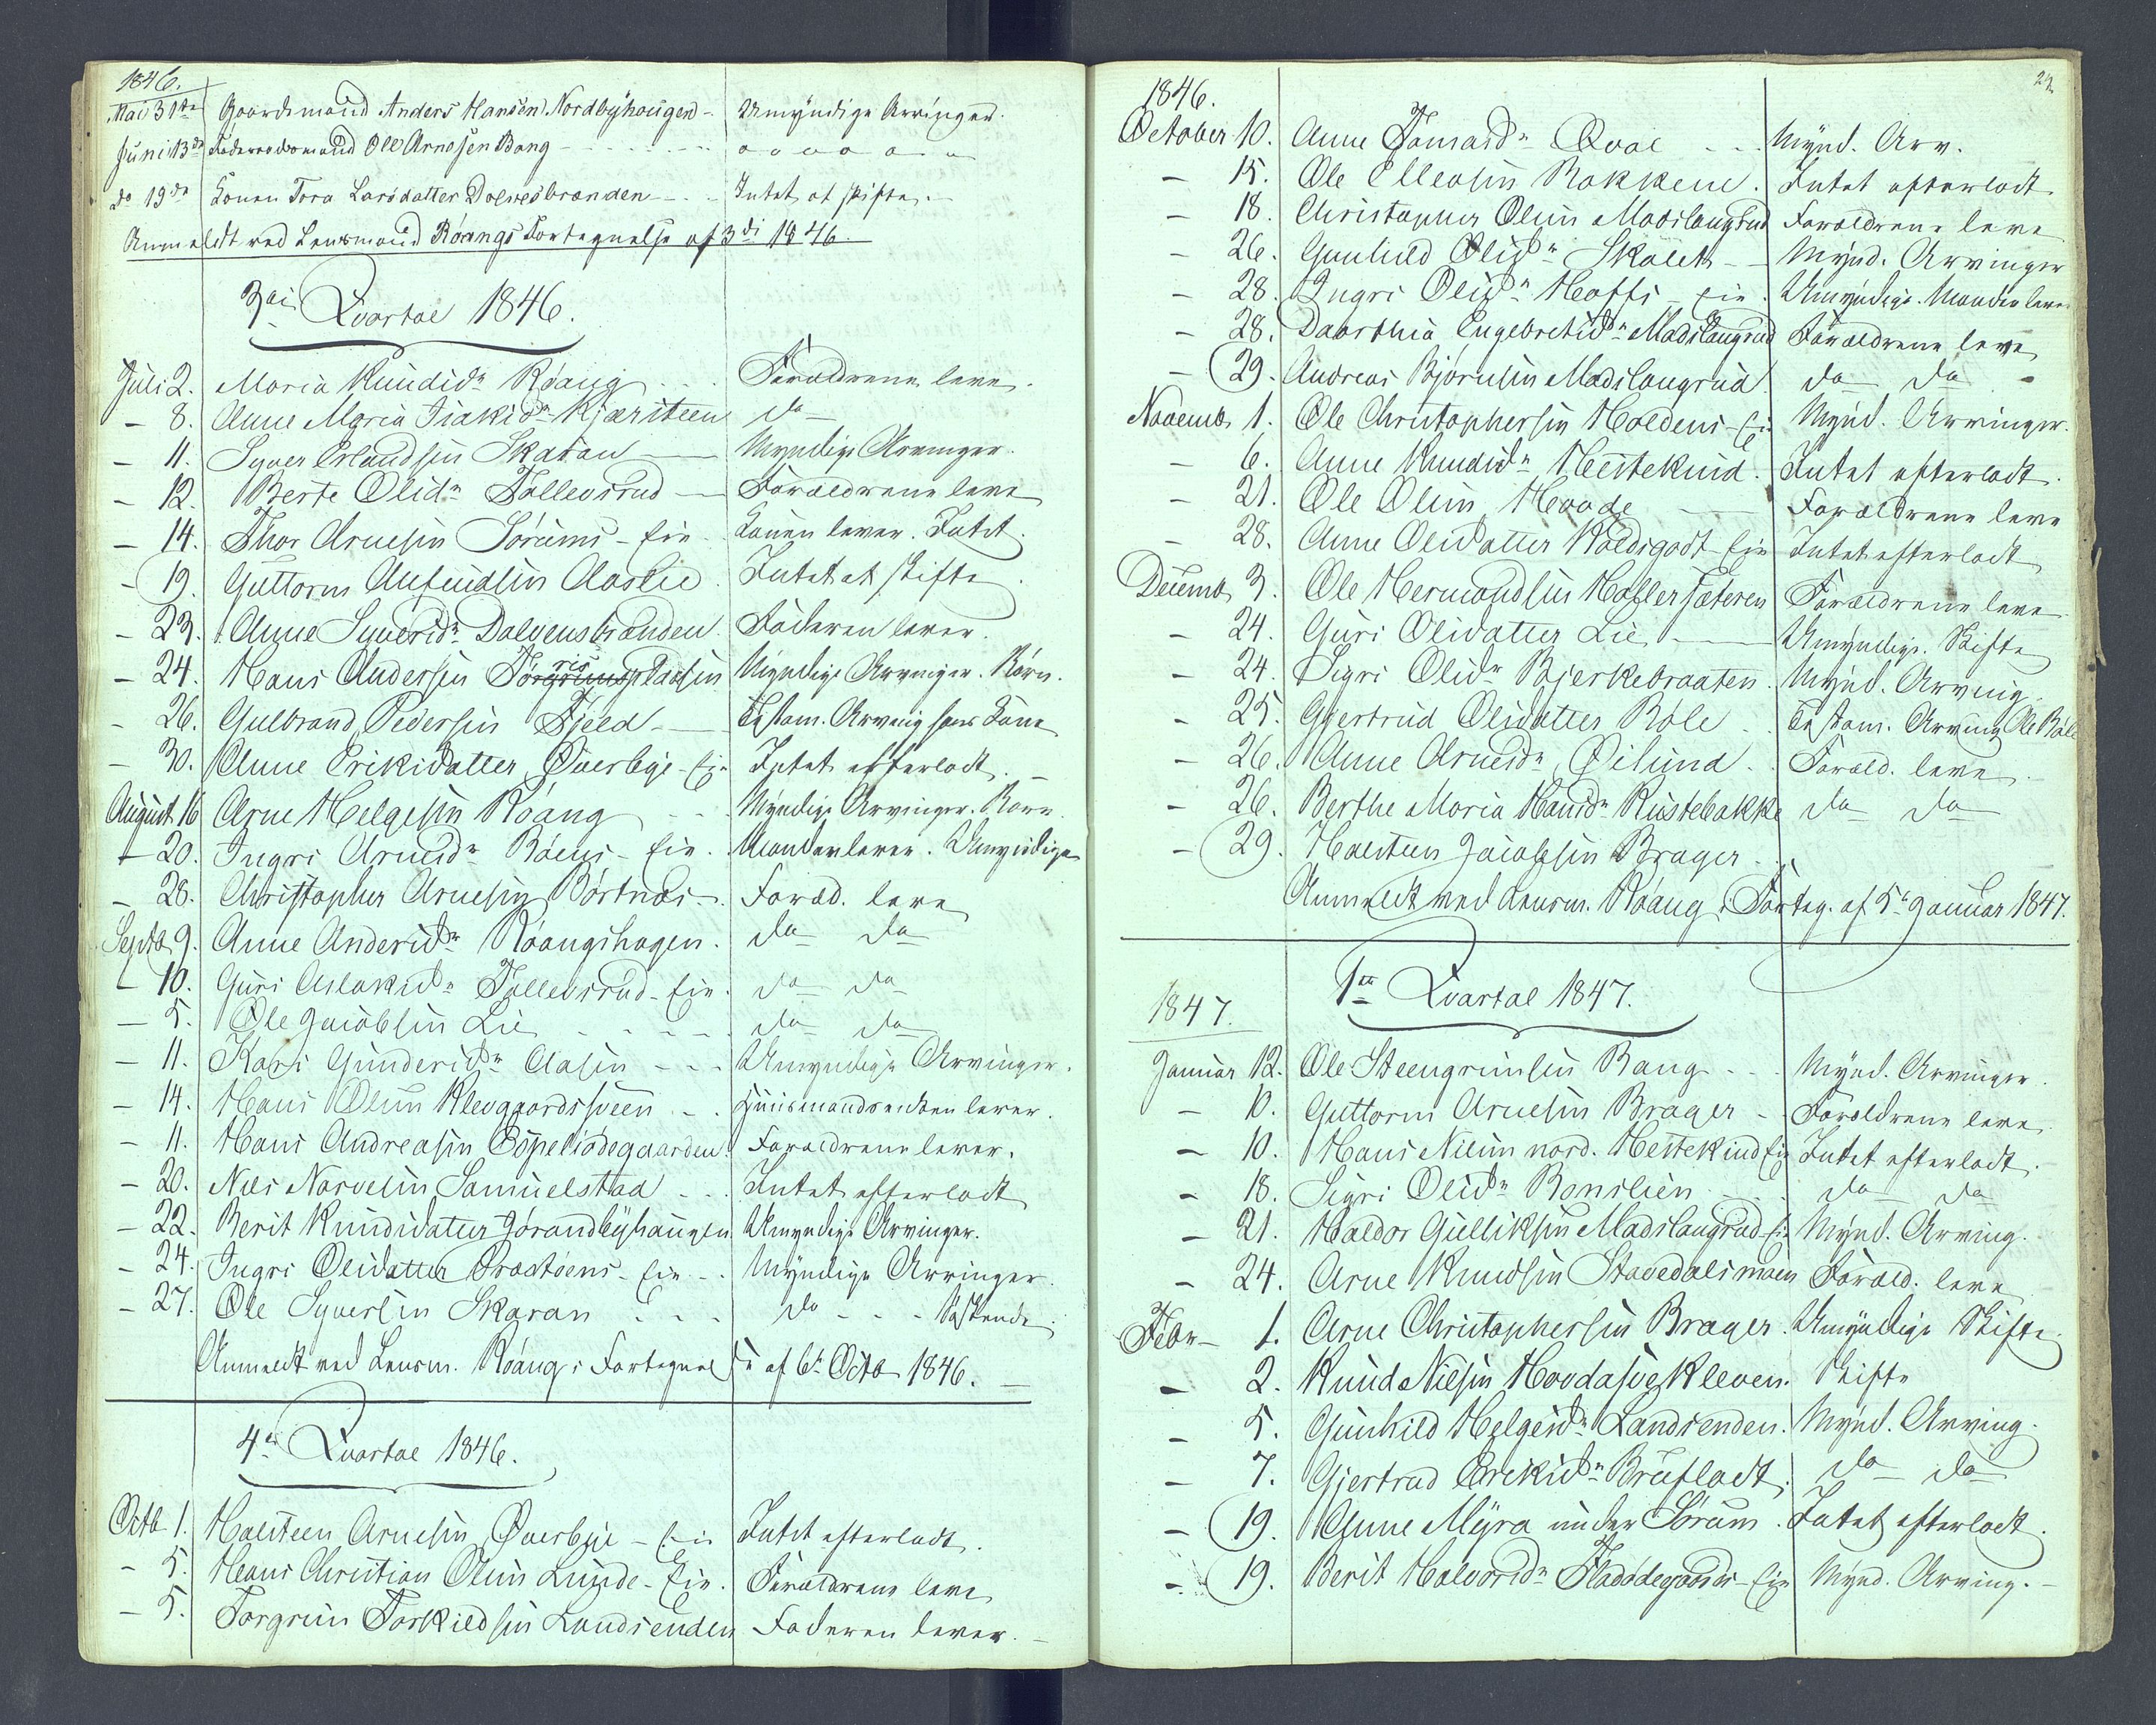 1846.
Mai 31te Gaardmand Anders Hansen Nordbyhougen - Umyndige Arvinger.
Juni 13de Føderaadsmand Ole Arnesen Bang - - - - - - -
do 19de Konen Tora Larsdatter Dolvesbraanden - - - Intet at skifte.
Anmeldt ved Lensmand Röangs Fortegnelse af 3di 1846.
3die Qvartal 1846.
Juli 2. Maria Knudsdr Röang - - - Forældrene leve.
- 8. Anne Maria Isaksdr Kjæristeen do
- 11. Syver Erlandsen Skaran - Myndige Arvinger.
- 12. Berte Olsdr Tollevsrud - Forældrene leve
- 14. Thor Arnesen Sörums-Eie. Konen lever. Intet.
- 19. Guttorm Aufindsen Aaslie. Intet at skifte.
- 23. Anne Syversdr Dalvensbraaden. Faderen lever.
- 24. Hans Andersen Myndige Arvinger. Børn.
- 26. Gulbrand Pedersen Fjeld - Testam. Arving hans Kone
- 30. Anne Eriksdatter Qverbye-Eie Intet efterladt. -
August 16 Arne Helgesen Röang - - Myndige Arvinger. Børn.
- 20. Ingri Arnesdr Böens-Eie. Manden lever. Umyndige
- 28. Christopher Arnesen Börtnæs - Foræld. leve
Septbr 9. Anne Andersdr Röangshagen. do do
- 10. Guri Aslaksdr Tollevsrud-Eie. do do
- 5. Ole Jacobsen Lie - - - - do do
- 11. Kari Gundersdr Aasen - - - Umyndige Arvinger.
- 14. Hans Olsen Klevgaardssveen - . Huusmandsenken lever.
- 11. Hans Andreasen Espeliødegaarden. Forældrene lever.
- 20. Niels Narvesen Samuelstad - . . Intet efterladt
- 22. Berit Knudsdatter Jörandbyhaugen Umyndige Arvinger.
- 24. Ingri Olsdatter Prastöens-Eie - . Myndige Arvinger.
- 27. Ole Syversen Skaran - - - do - - - Søskende.
Anmeldt ved Lensm. Röang i Fortegnelse af 6te Octb 1846.
4de Qvartal 1846.
Octb 1. Halsteen Arnesen Qverbye - Eie Intet efterladt.
- 5. Hans Christian Olsen Lunde-Eie. Forældrene leve
- 5. Torgrim Torkildsen Landsenden Faderen lever. -
24
1846.
October 10. Anne Tomasdr Qvae - - . Mynd. Arv.
- 15. Ole Ellevsen Bakkene. Intet efterladt
- 18. Christopher Olsen Madslangrud Forældrene leve
- 26. Gunhild Olsdr - - Mynd. Arvinger
- 28. Ingri Olsdr Hoffs - Eie. Umyndige. Manden lever
- 28. Daarthia Engebretsdr Madslangrud Forældrene leve
- 29. Andreas Björnsen Madslangrud do do -
Novemb 1. Ole Christophersen Holdens-Eie Mynd. Arvinger.
- 6. Anne Knudsdr Hestekind. Intet efterladt.
- 21. Ole Olsen Hovde - Forældrene leve
- 28. Anne Olsdatter Koldsgodt-Eie Intet efterladt
Decemb 3. Ole Hermandsen Hallersæteren Forældrene leve
- 24. Guri Olsdatter Lie - Umyndige. Skifte
- 24. Sigri Olsdr Bjerkebraaten. Mynd. Arving.
- 25. Gjertrud Olsdatter Böle . . Testam. Arving Ole Böle
- 26. Anne Arnesdr Öilund . . Foræld. leve.
- 26. Berthe Maria Hansdr Rustebakke do do
- 29. Halsteen Jacobsen Brager . .
Anmeldt ved Lensm. Röang i Forteg. af 5te Januar 1847.
1te Qvartal 1847.
1847.
Januar 12. Ole Steengrimsen Bang - - . Mynd. Arvinger.
- 10. Guttorm Arnesen Brager - . Forældrene leve.
- 10. Hans Nilsen nord. Hestekind Eie Intet efterladt.
- 18. Sigri Olsdr Bonslien . . . do do
- 21. Haldor Gulliksen Madslangrud-Eie Mynd. Arving.
- 24. Arne Knudsen Stavedalsmoen Foræld. leve
Febr - 1. Arne Christophersen Brager. Umyndige Skifte.
- 2. Knud Nilsen Hovdasvekleven. Skifte
- 5. Gunhild Helgesdr Landsenden. Mynd. Arving.
- 7. Gjertrud Eriksdr Brufladt. do do
- 19. Anne Myra under Sörum. Intet efterladt.
- 19. Berit Halvorsdr Fladödegaards-Eie Mynd. Arving. -